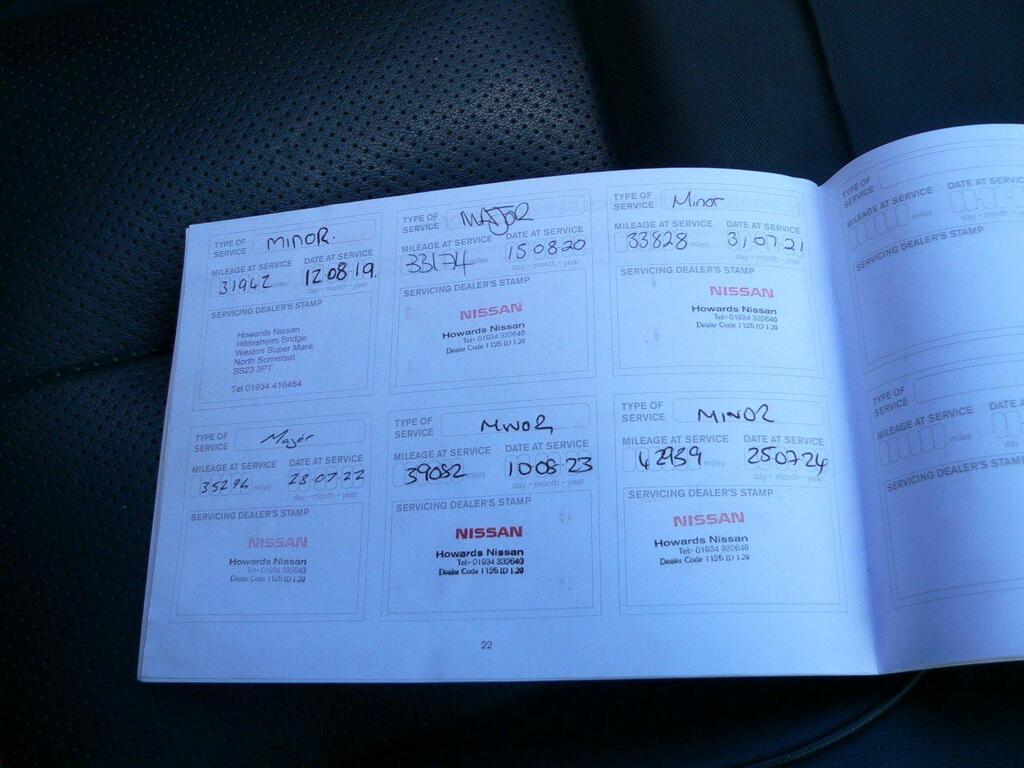 TYPE OF SERVICE MINOR.
MILEAGE AT SERVICE DATE AT SERVICE
31942 miles 12 08 19.
day - month - year
SERVICING DEALER'S STAMP
Howards Nissan
Hildesheim Bridge
Weston Super Mare
North Somerset
BS23 3PT
Tel 01934 416454
TYPE OF SERVICE MAJOR
MILEAGE AT SERVICE DATE AT SERVICE
33174 miles 15 08 20
day - month - year
SERVICING DEALER'S STAMP
NISSAN
Howards Nissan
Tel:- 01934 332640
Dealer Code 1125 ID 1.29
TYPE OF SERVICE Minor
MILEAGE AT SERVICE DATE AT SERVICE
33828 miles 31 07 21
day - month - year
SERVICING DEALER'S STAMP
NISSAN
Howards Nissan
Tel:- 01934 332640
Dealer Code 1125 ID 1.29
TYPE OF SERVICE Major
MILEAGE AT SERVICE DATE AT SERVICE
35294 miles 28 07 22
day - month - year
SERVICING DEALER'S STAMP
NISSAN
Howards Nissan
Tel:- 01934 332640
Dealer Code 1125 ID 1.29
TYPE OF SERVICE MINOR
MILEAGE AT SERVICE DATE AT SERVICE
39082 miles 10 08 23
day - month - year
SERVICING DEALER'S STAMP
NISSAN
Howards Nissan
Tel:- 01934 332640
Dealer Code 1125 ID 1.29
TYPE OF SERVICE MINOR
MILEAGE AT SERVICE DATE AT SERVICE
42959 miles 25 07 24
day - month - year
SERVICING DEALER'S STAMP
NISSAN
Howards Nissan
Tel:- 01934 332640
Dealer Code 1125 ID 1.29
22
TYPE OF SERVICE
MILEAGE AT SERVICE DATE AT SERVICE
miles day - month -
SERVICING DEALER'S STAMP
TYPE OF SERVICE
MILEAGE AT SERVICE DATE A
miles day
SERVICING DEALER'S STAMP